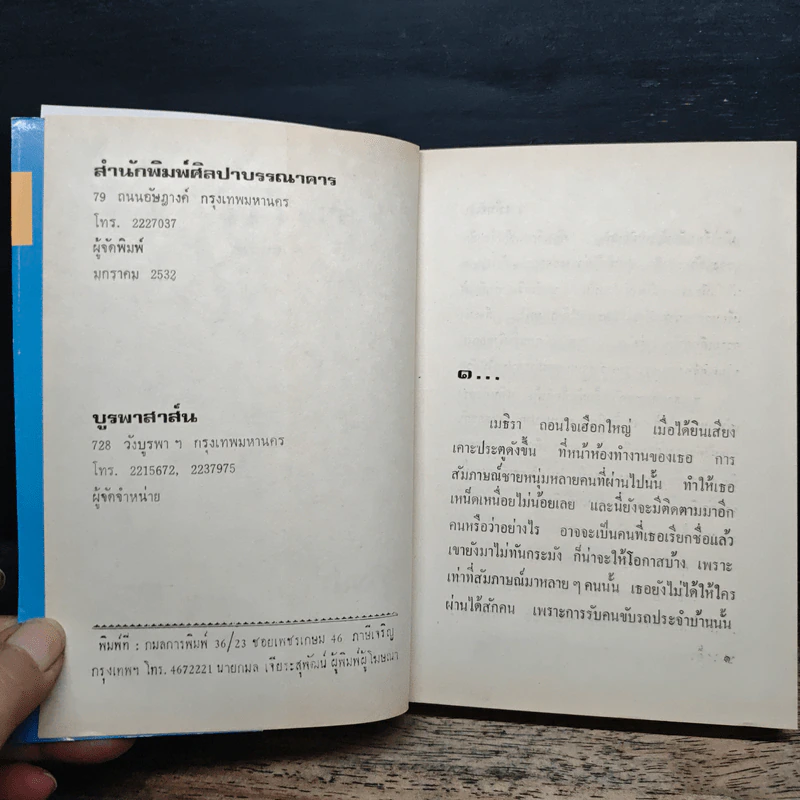 สำนักพิมพ์ศิลปาบรรณาคาร
79 ถนนอัษฎางค์ กรุงเทพมหานคร
โทร. 2227037
ผู้จัดพิมพ์
มกราคม 2532
บูรพาสาส์น
728 วังบูรพา ฯ กรุงเทพมหานคร
โทร. 2215672, 2237975
ผู้จัดจำหน่าย
พิมพ์ที่ : กมลการพิมพ์ 36/23 ซอยเพชรเกษม 46 ภาษีเจริญ
กรุงเทพฯ โทร. 4672221 นายกมล เจียระสุพัฒน์ ผู้พิมพ์ผู้โฆษณา
๑...
เมธิรา ถอนใจเฮือกใหญ่ เมื่อได้ยินเสียง
เคาะประตูดังขึ้น ที่หน้าห้องทำงานของเธอ การ
สัมภาษณ์ชายหนุ่มหลายคนที่ผ่านไปนั้น ทำให้เธอ
เหน็ดเหนื่อยไม่น้อยเลย และนี่ยังจะมีติดตามมาอีก
คนหรือว่าอย่างไร อาจจะเป็นคนที่เธอเรียกชื่อแล้ว
เขายังมาไม่ทันกระมัง ก็น่าจะให้โอกาสบ้าง เพราะ
เท่าที่สัมภาษณ์มาหลาย ๆ คนนั้น เธอยังไม่ได้ให้ใคร
ผ่านได้สักคน เพราะการรับคนขับรถประจำบ้านนั้น
๑